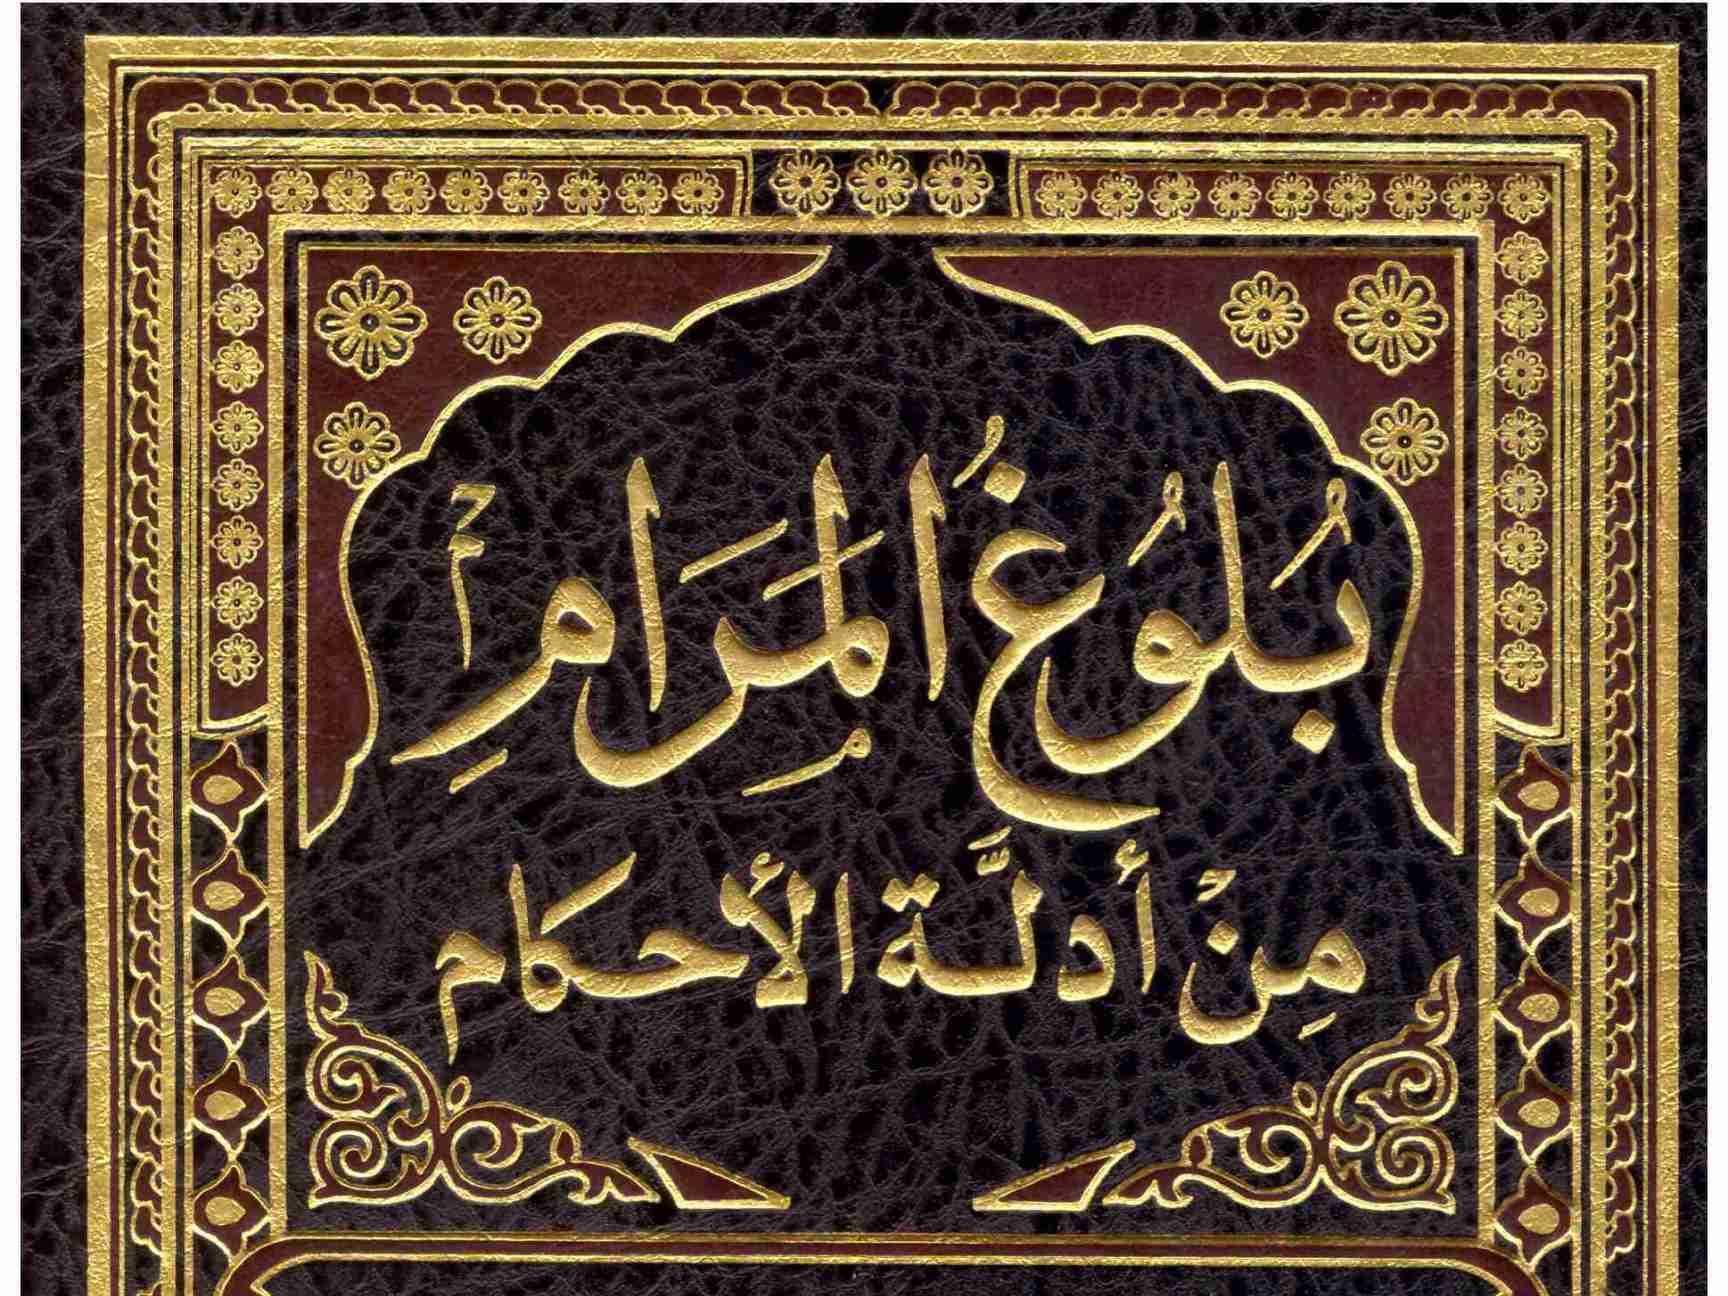 بُلُوغُ المَرَامِ
مِنْ أَدلَّة الأَحكَام